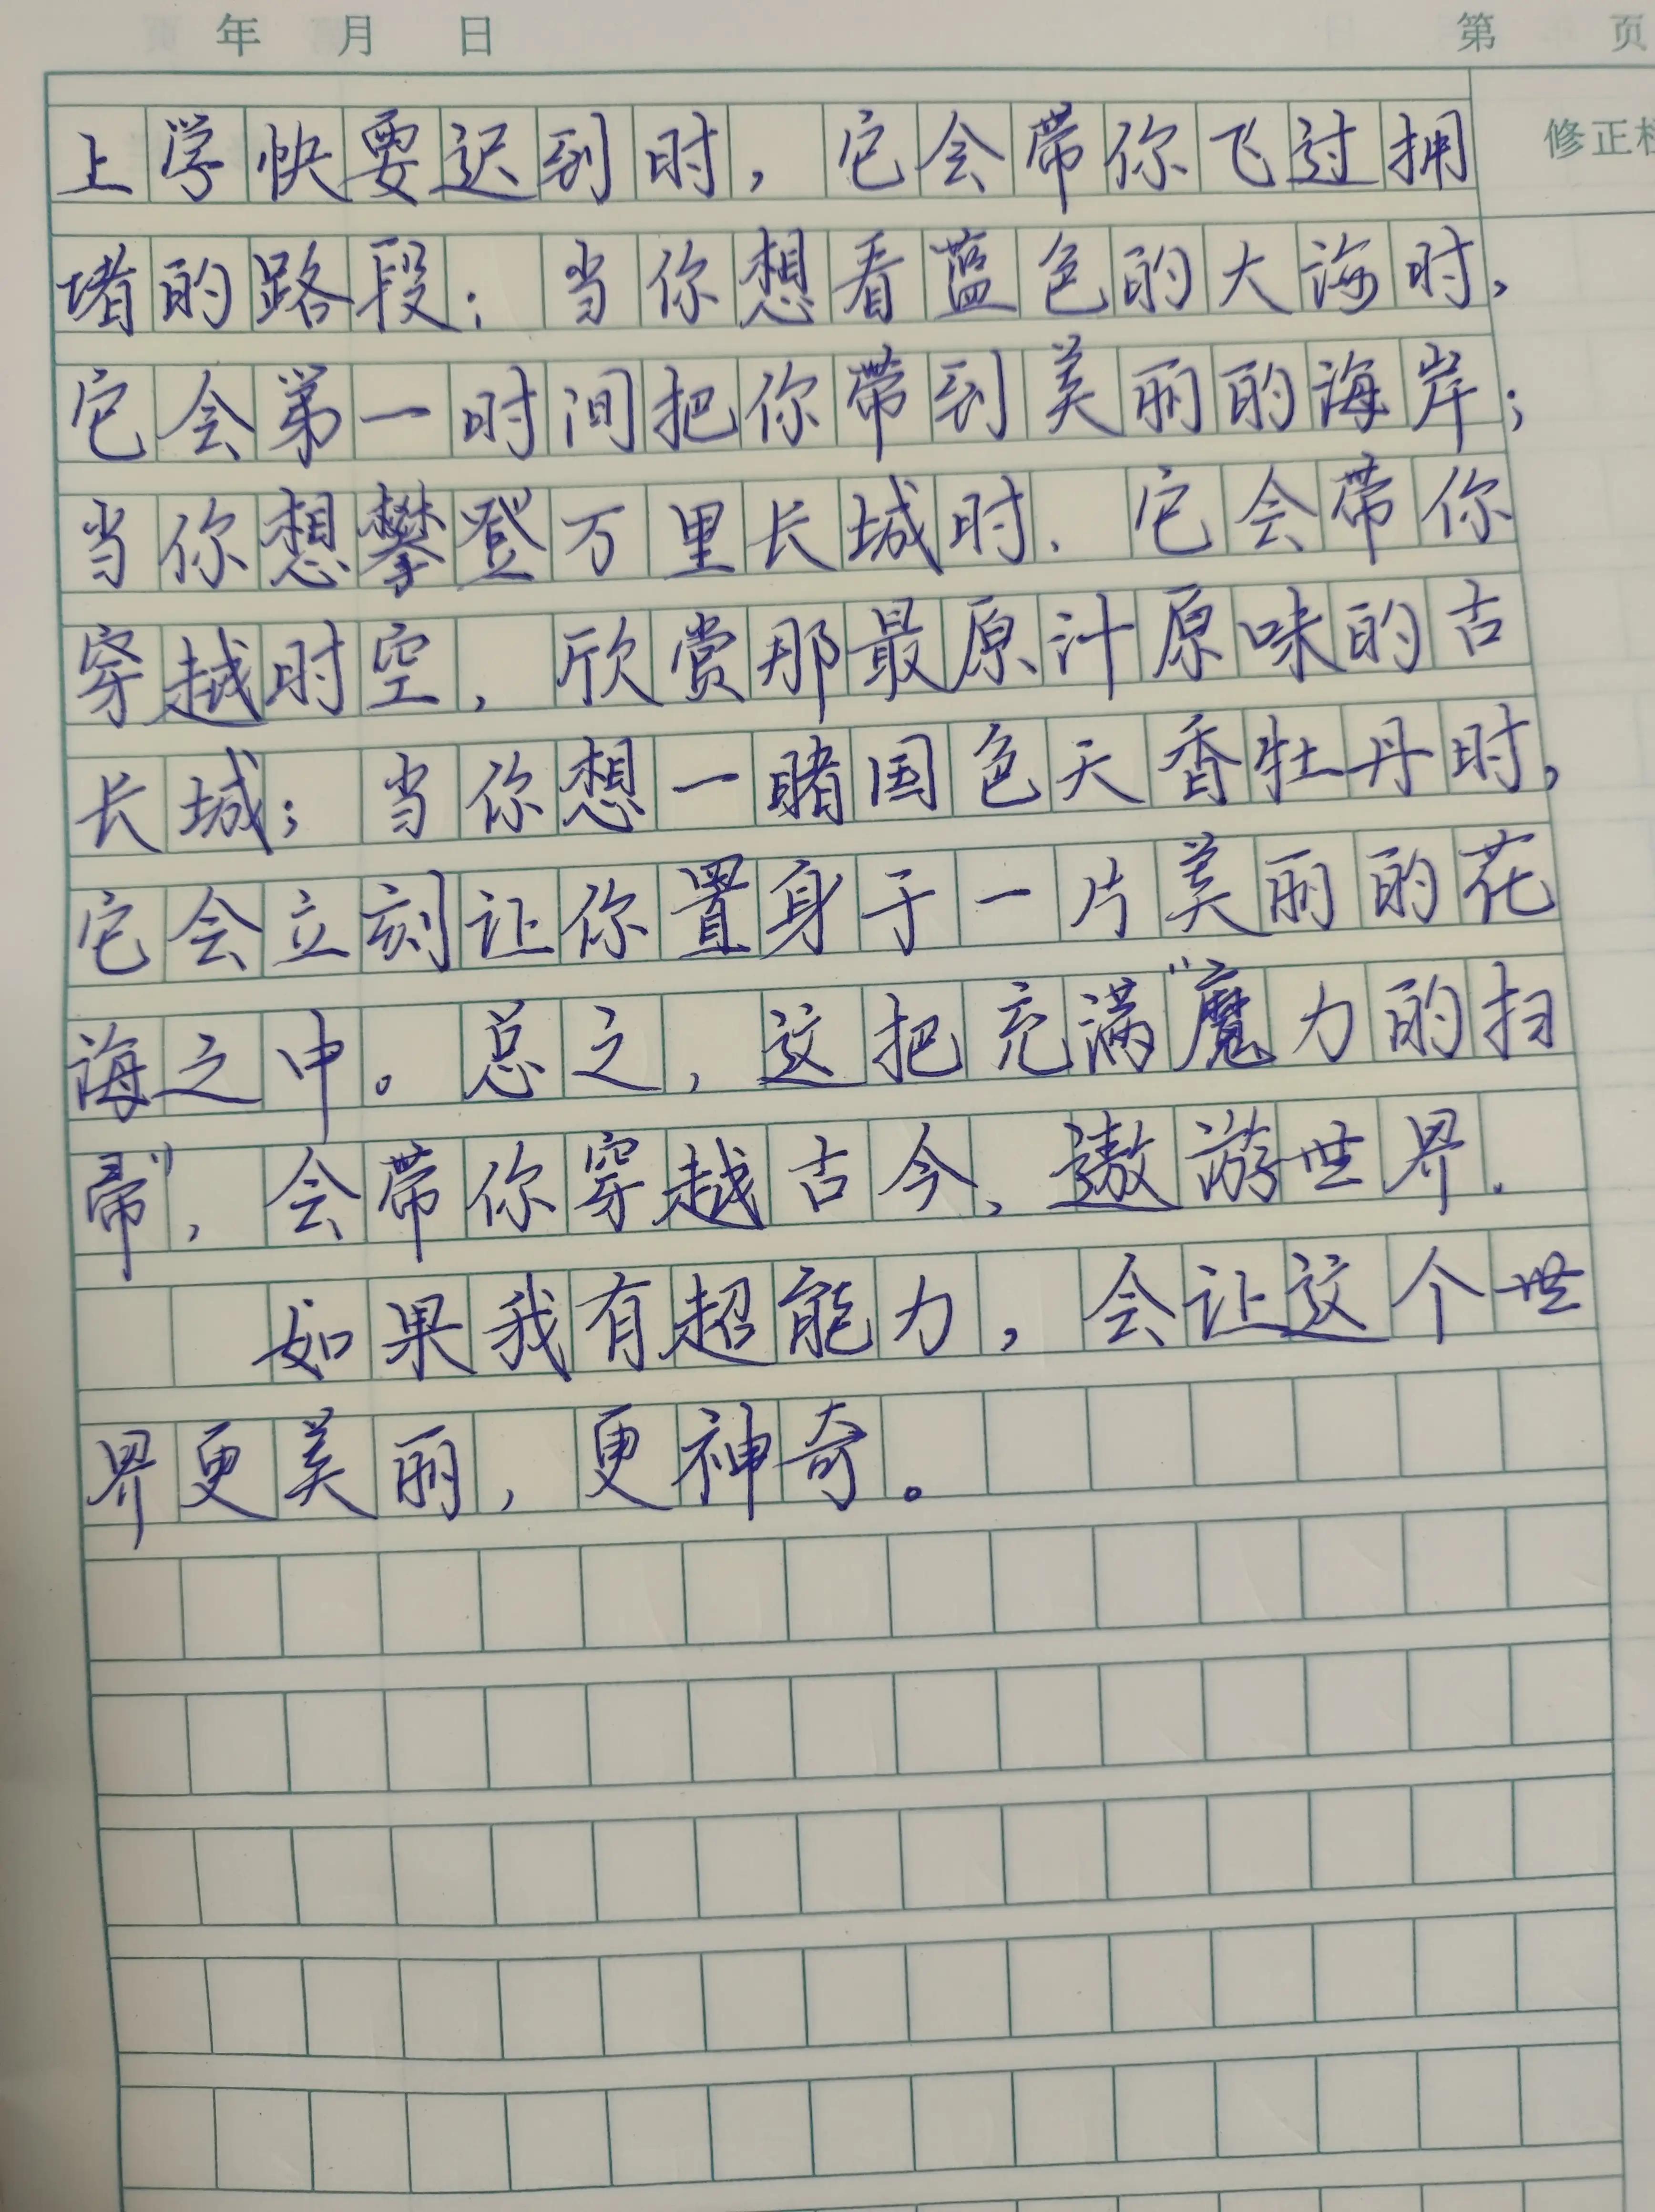 年 月 日 第 页
修正栏
上学快要迟到时，它会带你飞过拥
堵的路段；当你想看蓝色的大海时，
它会第一时间把你带到美丽的海岸；
当你想攀登万里长城时，它会带你
穿越时空，欣赏那最原汁原味的古
长城；当你想一睹国色天香牡丹时，
它会立刻让你置身于一片美丽的花
海之中。总之，这把充满“魔力的扫
帚”，会带你穿越古今、遨游世界.
如果我有超能力，会让这个世
界更美丽，更神奇。